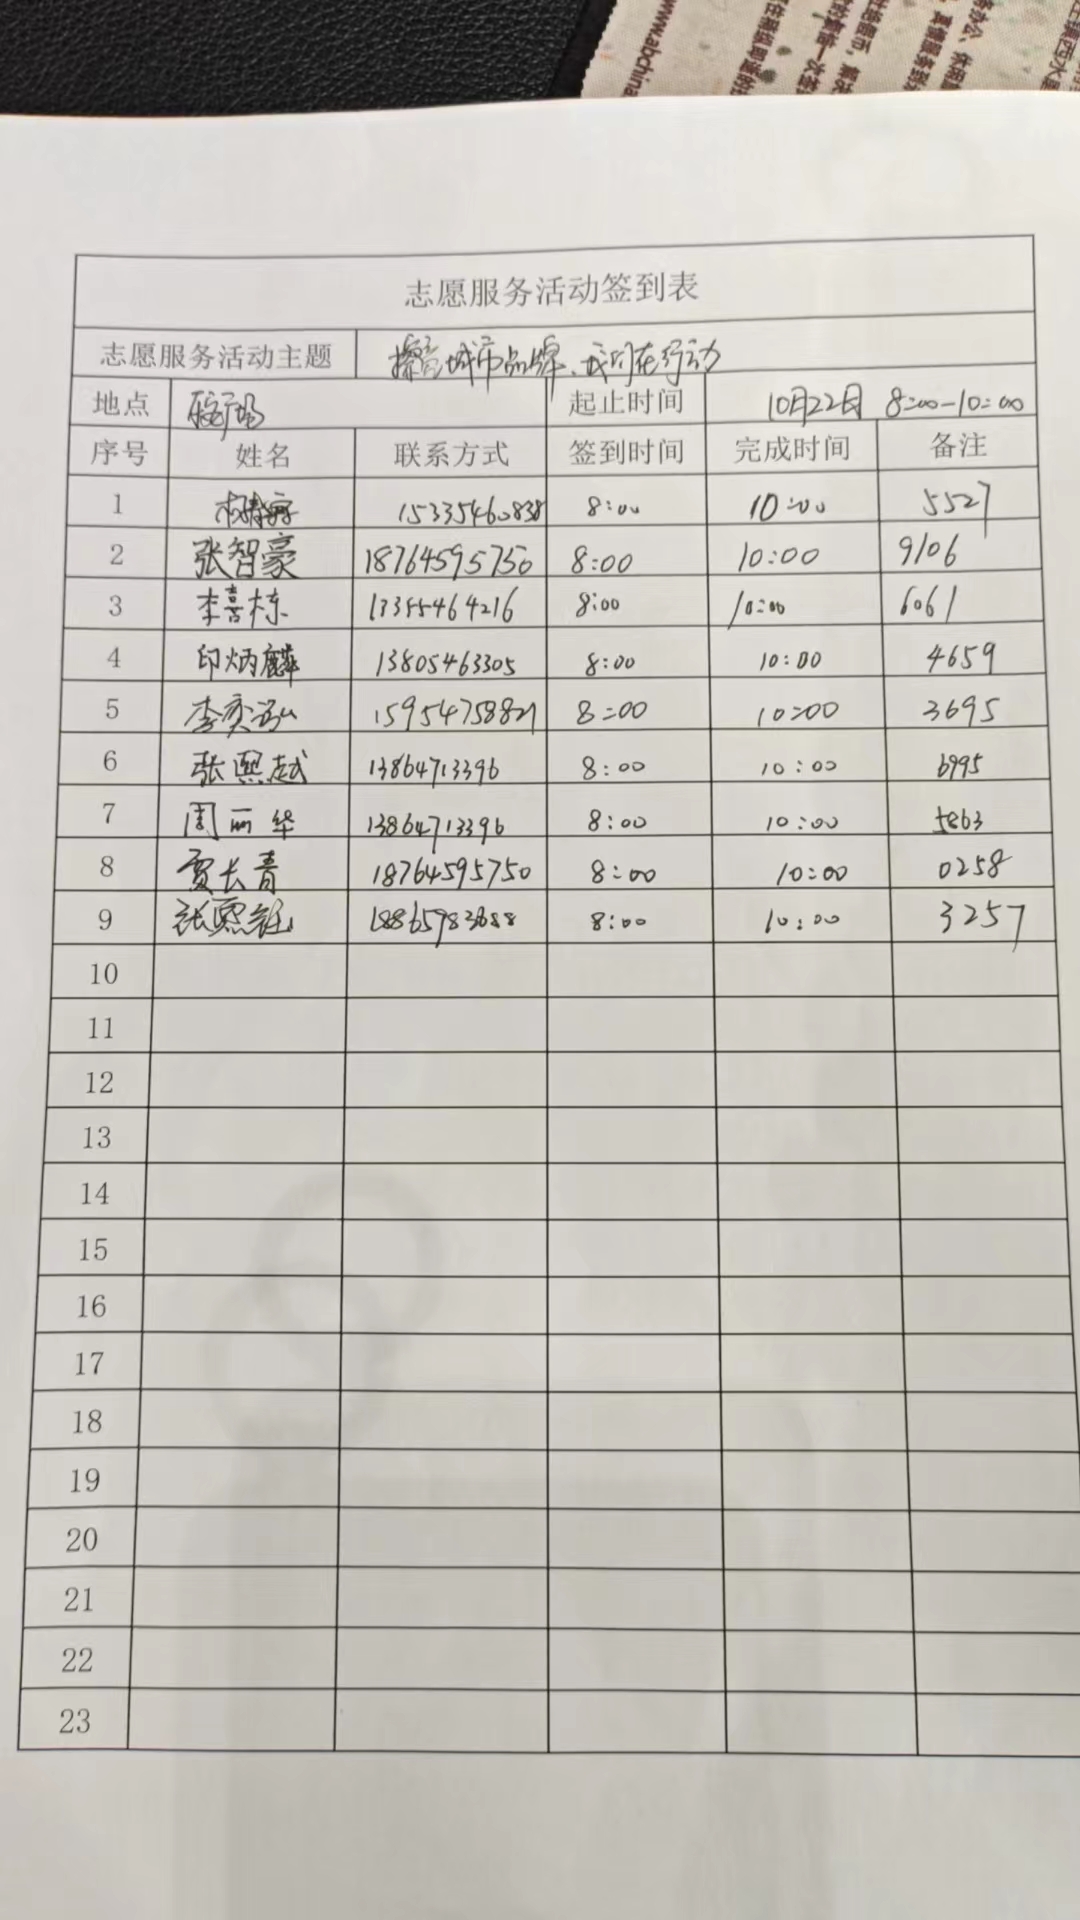 www.abchina
志愿服务活动签到表
志愿服务活动主题 擦亮城市品牌、我们在行动
地点 起止时间 10月22日 8:00-10:00
序号 姓名 联系方式 签到时间 完成时间 备注
1 15335460838 8:00 10:00 5527
2 张智豪 18764595750 8:00 10:00 9106
3 李喜栋 13355464216 8:00 10:00 6061
4 印炳麟 13805463305 8:00 10:00 4659
5 李奕泓 15954758821 8:00 10:00 3695
6 张熙越 13864713396 8:00 10:00 6995
7 周丽华 13864713396 8:00 10:00 5863
8 贾长青 18764595750 8:00 10:00 0258
9 张熙 18865983688 8:00 10:00 3257
10
11
12
13
14
15
16
17
18
19
20
21
22
23